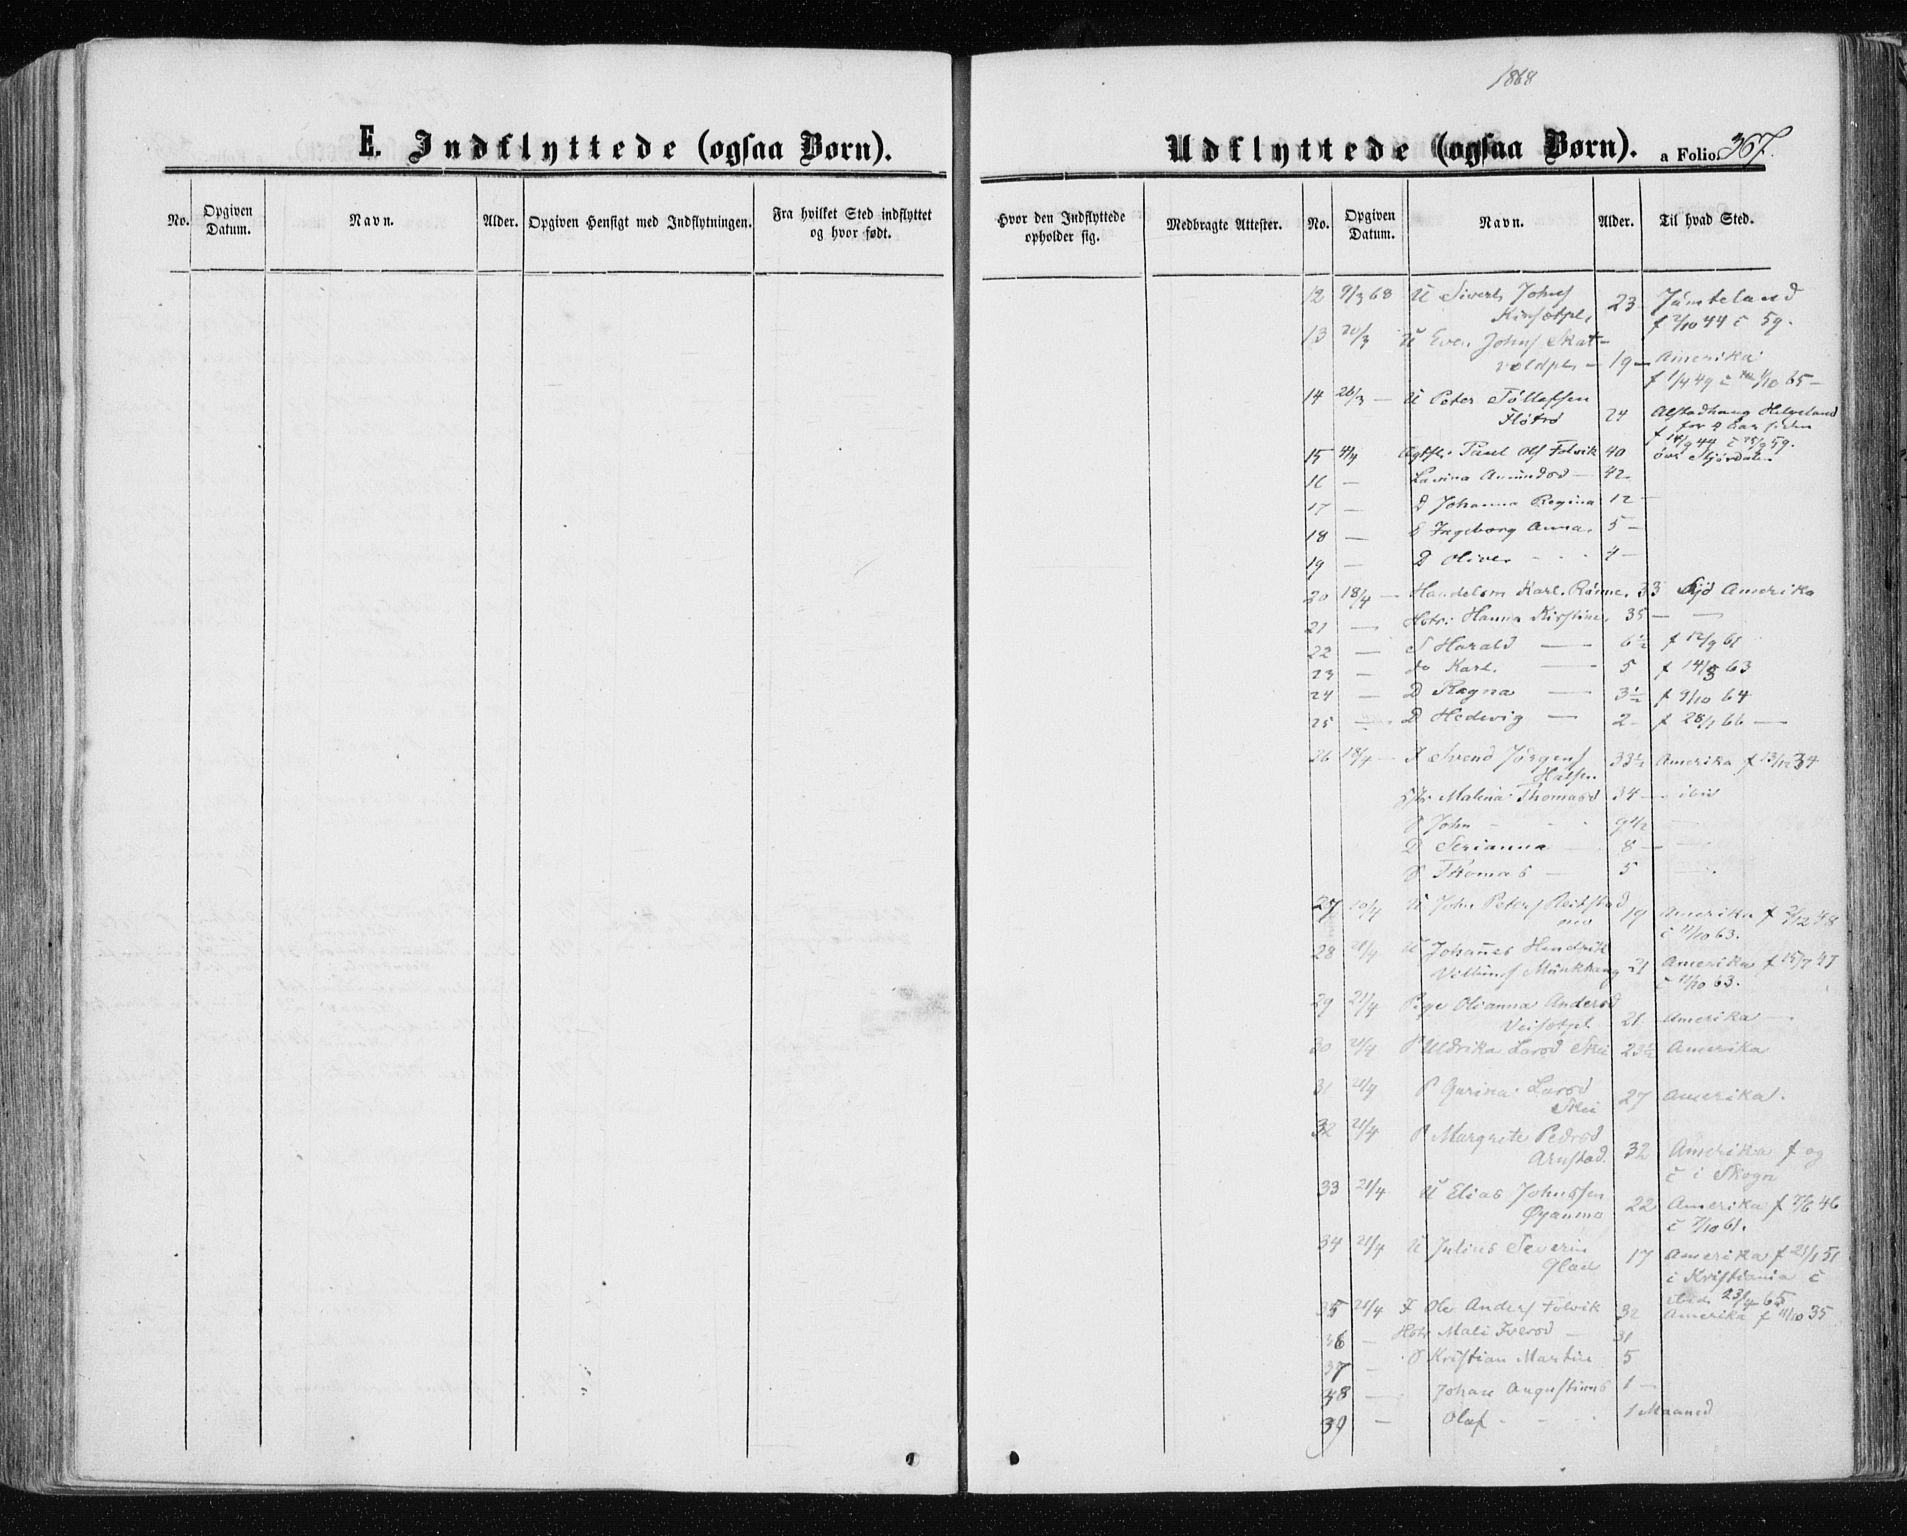 1868
E. Indflyttede (ogsaa Børn).
Udflyttede (ogsaa Børn). a Folio. 367.
No. Opgiven Datum. Navn. Alder. Opgiven Hensigt med Indflytningen. Fra hvilket Sted indflyttet og hvor født.
Hvor den Indflyttede opholder sig. Medbragte Attester. No. Opgiven Datum. Navn. Alder. Til hvad Sted.
12 9/3 68 U Sivert Johns 23 Jämteland
f 2/10 44 c 59.
13 20/3 U Even Johns Skat-
voldpl 19 Amerika
f 1/4 49 c 1/10 65
14 26/3 — U Peter Töllefsen
Flötrö 24 Alstadhaug Helgeland
for 2 Aar siden
f 14/9 44 c 25/9 59.
15 4/4 Paul Ols Folvik 40 övre Stjördalen
16 — Lavina Amundsd — 42
17 — D Johanna Regina 12 —
18 — D Ingeborg Anna 5 —
19 — D Oliver 4 —
20 18/4 — Handelsm Karl Rönne 33 Syd Amerika
21 — Hstr: Hanna Kirstine 35 — —
22 — S Harald — 6½ f 12/9 61
23 — do Karl. — 5 f 14/3 63
24 — D Ragna — 3½ f 9/10 64
25 — D Hedevig — 2 f 28/2 66 —
26 18/4 — F Svend Jörgens
Halsen 33½ Amerika f 13/12 34
Malena Thomasd 34 — ibid
S John 9½ —
D Serianna 8 — —
S Thomas — 5 —
27 20/4 U John Peters Reitstad
19 Amerika f 2/12 48
c 11/10 63.
28 21/4 U Johannes Hendrik
Villums Munkhaug 21 Amerika f 15/7 47
c 11/10 63.
29 21/4 Pige Olianna Andersd
21 Amerika —
30 21/4 P Uldrika Larsd Skei 23½ Amerika
31 21/4 P Gurina Larsd
Skei 27 Amerika.
32 21/4 P Margrete Pedrsd
Arnstad. 32 Amerika f og
c i Skogn
33 21/4 U Elias Johnssen
Öyanmo 22 Amerika f 7/6 46
c 7/10 61.
34 21/4 U Julius Severin
Glad 17 Amerika f 21/1 51
i Kristiania c
ibid 23/4 65
35 21/4 F Ole Anders Folvik 32 Amerika f 11/10 35
36 — Hstr Mali Iversd — 31
37 — S Kristian Martin 5
38 — Johan Augustinus 1 —
39 — Olaf 1 Maaned